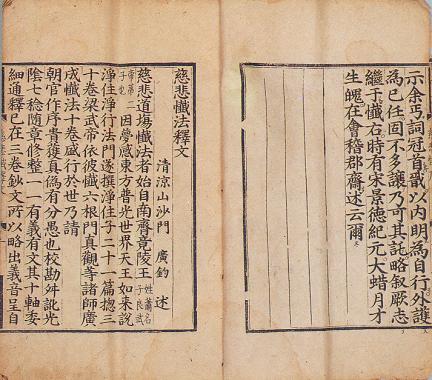 示余丐詞冠首戢以内明為自行外護
為已任固不多讓乃可其託略叙厥志
継于懺右時有宋景德紀元大蜡月才
生魄在會稽郡齋述云爾
慈悲懺法釋文
清涼山沙門 廣鈞 述
慈悲道塲懺法者始自南齊竟陵王姓蕭名子良武
帝第二子也因夢感東方普光世界天王如來說
淨住淨行法門遂撰淨住子二十一篇揔三
十卷梁武帝依彼懺六根門真觀等諸師廣
成懺法十卷盛行於世乃請
朝官作序貴獲真偽有分愚也校勘舛訛光
陰七稔随章修整一一有義有文其十軸委
細通釋已在三卷鈔文所以略出義音呈自